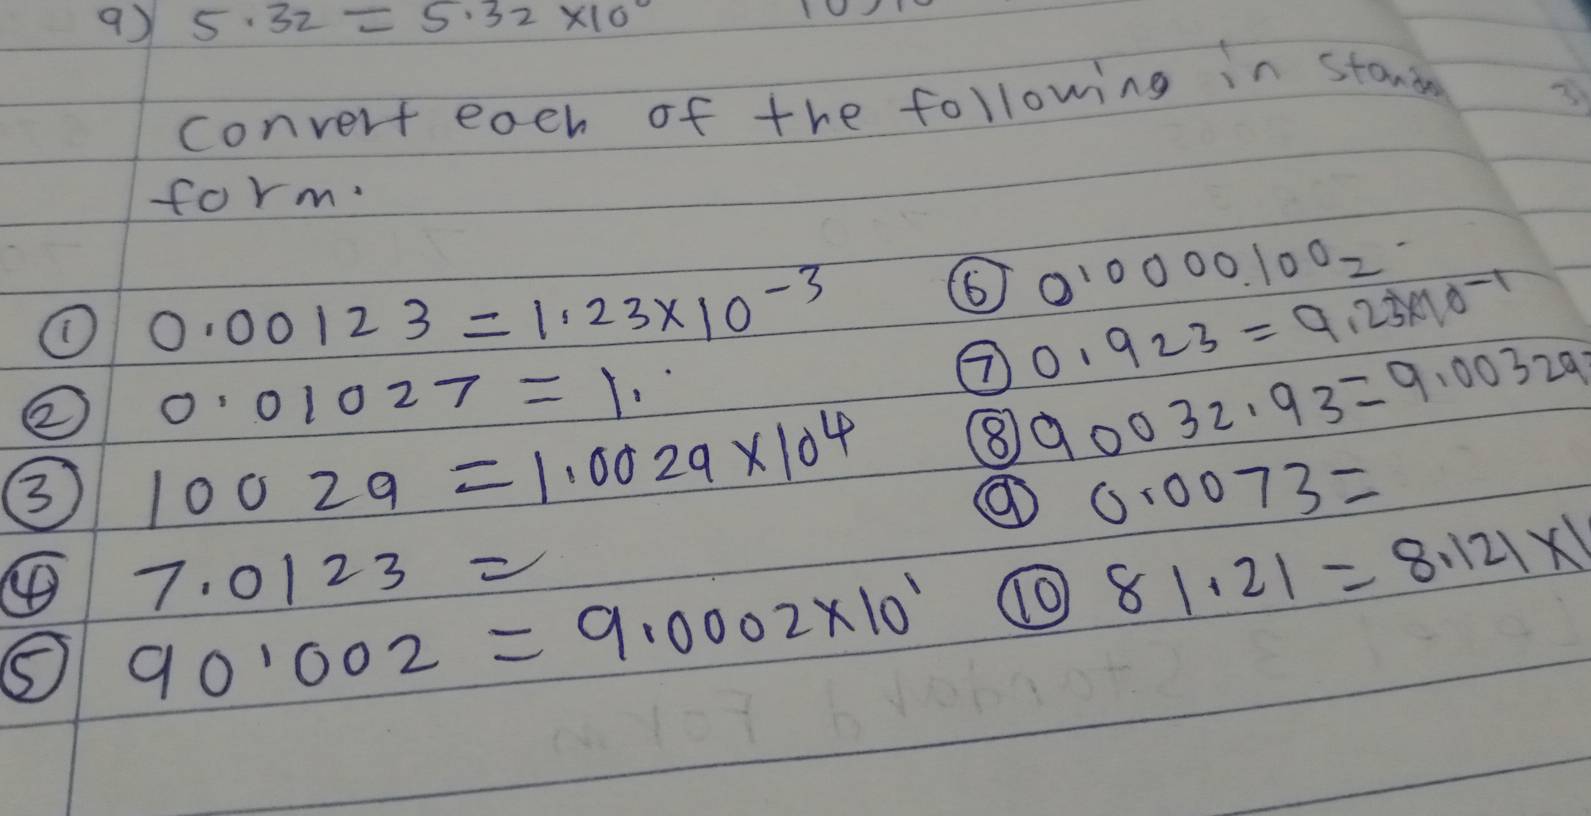 9) 5.32 = 5.32 ×10⁰
Convert each of the following in
form.
① 0.00123 = 1.23×10⁻³
② 0.01027 = 1.
③ 10029 = 1.0029×10⁴
④ 7.0123 =
⑤ 90.002 = 9.0002×10¹
⑥ 0.00001002
⑦ 0.923 = 9.23×10⁻¹
⑧ 90032.93 = 9.00329
⑨ 0.0073 =
⑩ 81.21 = 8.121×1